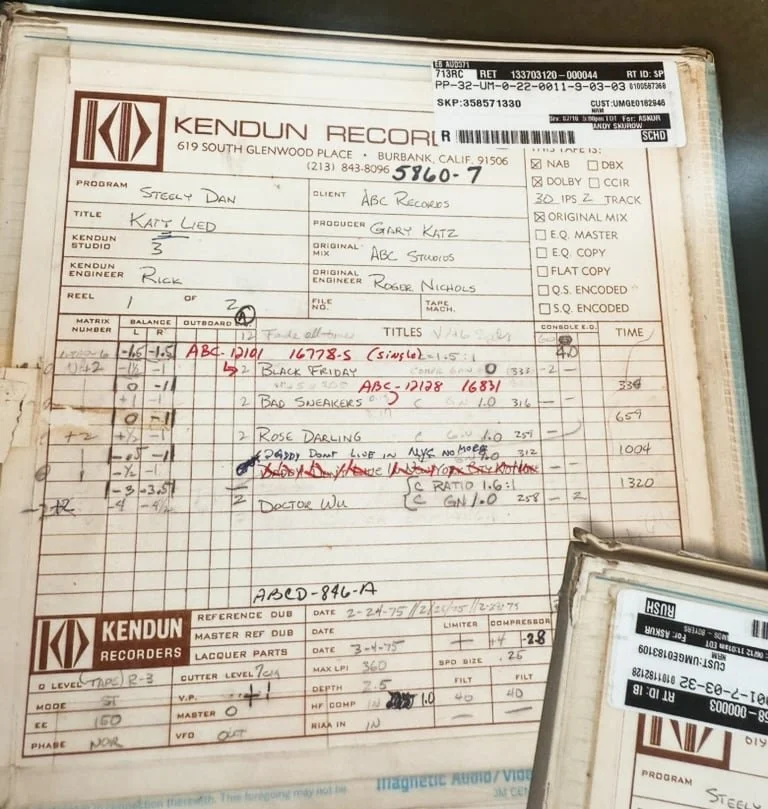 EB AUD371
713RC RET 133703120-000044 RT ID: SP
PP-32-UM-0-22-0011-9-03-03 0100587368
SKP:358571330 CUST:UMGE0182946
NRM
For: ASKUR
R ANDY SKUROW SCHD
KENDUN RECOR
619 SOUTH GLENWOOD PLACE • BURBANK, CALIF. 91506
(213) 843-8096 5860-7
THIS TAPE IS:
NAB DBX
DOLBY CCIR
30 IPS 2 TRACK
ORIGINAL MIX
E.Q. MASTER
E.Q. COPY
FLAT COPY
Q.S. ENCODED
S.Q. ENCODED
PROGRAM STEELY DAN CLIENT ABC RECORDS
TITLE KATY LIED PRODUCER GARY KATZ
KENDUN STUDIO 3 ORIGINAL MIX ABC STUDIOS
KENDUN ENGINEER RICK ORIGINAL ENGINEER ROGER NICHOLS
REEL 1 OF 2 FILE NO. TAPE MACH.
A
MATRIX NUMBER BALANCE L R OUTBOARD TITLES CONSOLE E.Q. TIME
-1.5 -1.5 ABC-12101 16778-S (SINGLE) =1.5:1 4.0
2 BLACK FRIDAY 0 333 -2 -
0 -1 ABC-12128 16831 334
+1 -1 2 BAD SNEAKERS C GN 1.0 316 -
0 -1 659
+2 +1/2 -1 2 ROSE DARLING C GN 1.0 259 -
-.5 -1 DADDY DONT LIVE IN NYC NO MORE 1.0 312 1004
-1/2 -1
-3 -3.5 C RATIO 1.6:1 1320
+2 -4 -4 1/2 2 DOCTOR WU C GN 1.0 258 - 2
ABCD-846-A
KENDUN RECORDERS
REFERENCE DUB DATE 2-24-75 // 2/26/75 // 2-28-75
MASTER REF DUB DATE LIMITER COMPRESSOR
LACQUER PARTS DATE 3-4-75 +4 -28
O LEVEL (TAPE) R-3 CUTTER LEVEL 7cm MAX LPI 360 SPD SIZE .25
MODE ST V.P. +1 DEPTH 2.5 FILT FILT
EE 150 MASTER 0 HF COMP IN 1.0 40 40
PHASE NOR VFO OUT RIAA IN IN — —
in connection therewith. The foregoing may not be
magnetic Audio/Vide
3M CEN
RUSH
For: ASKUR
NRM
CUST:UMGE0183109
0101182128
01-7-03-32
RT ID: IB
68-000003
619
PROGRAM STEELY